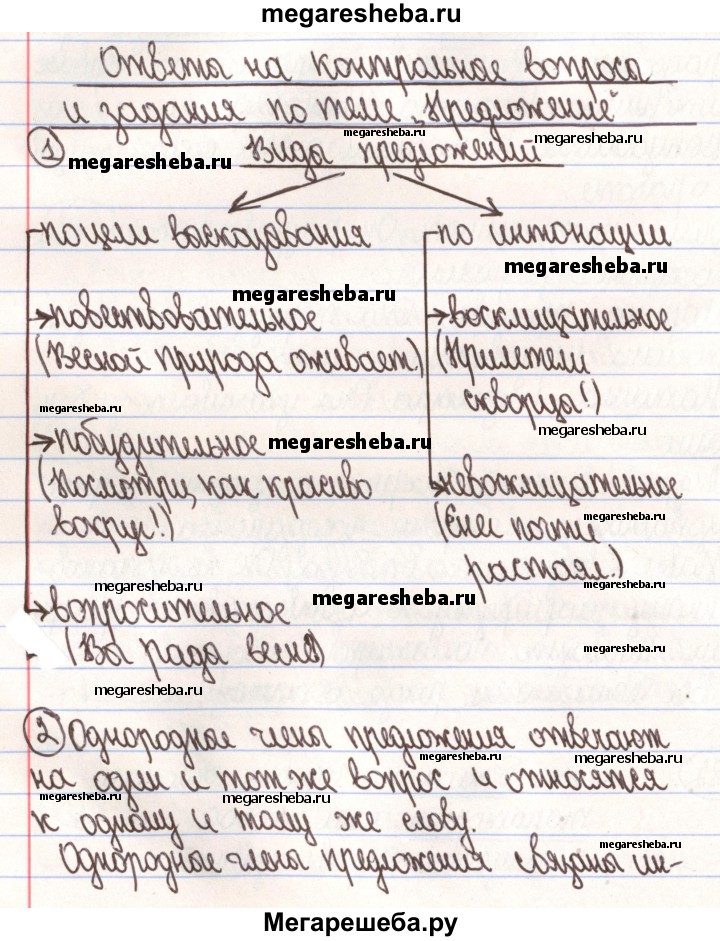 megaresheba.ru
Ответы на контрольные вопросы
и задания по теме „Предложения"
megaresheba.ru
megaresheba.ru
① Виды предложений
megaresheba.ru
по цели высказывания по интонации
megaresheba.ru
megaresheba.ru
→ повествовательные → восклицательные
(Весной природа оживает.) (Прилетели
megaresheba.ru скворцы!)
megaresheba.ru
→ побудительные megaresheba.ru
(Посмотри, как красиво → невосклицательные
вокруг!) (Снег почти
megaresheba.ru
растаял.)
megaresheba.ru megaresheba.ru
→ вопросительные megaresheba.ru
(Вы рады весне?)
megaresheba.ru
megaresheba.ru
② Однородные члены предложения отвечают
megaresheba.ru megaresheba.ru
на один и тот же вопрос и относятся
megaresheba.ru megaresheba.ru
к одному и тому же слову.
megaresheba.ru
Однородные члены предложения связаны ин-
megaresheba.ru megaresheba.ru
Мегарешеба.ру